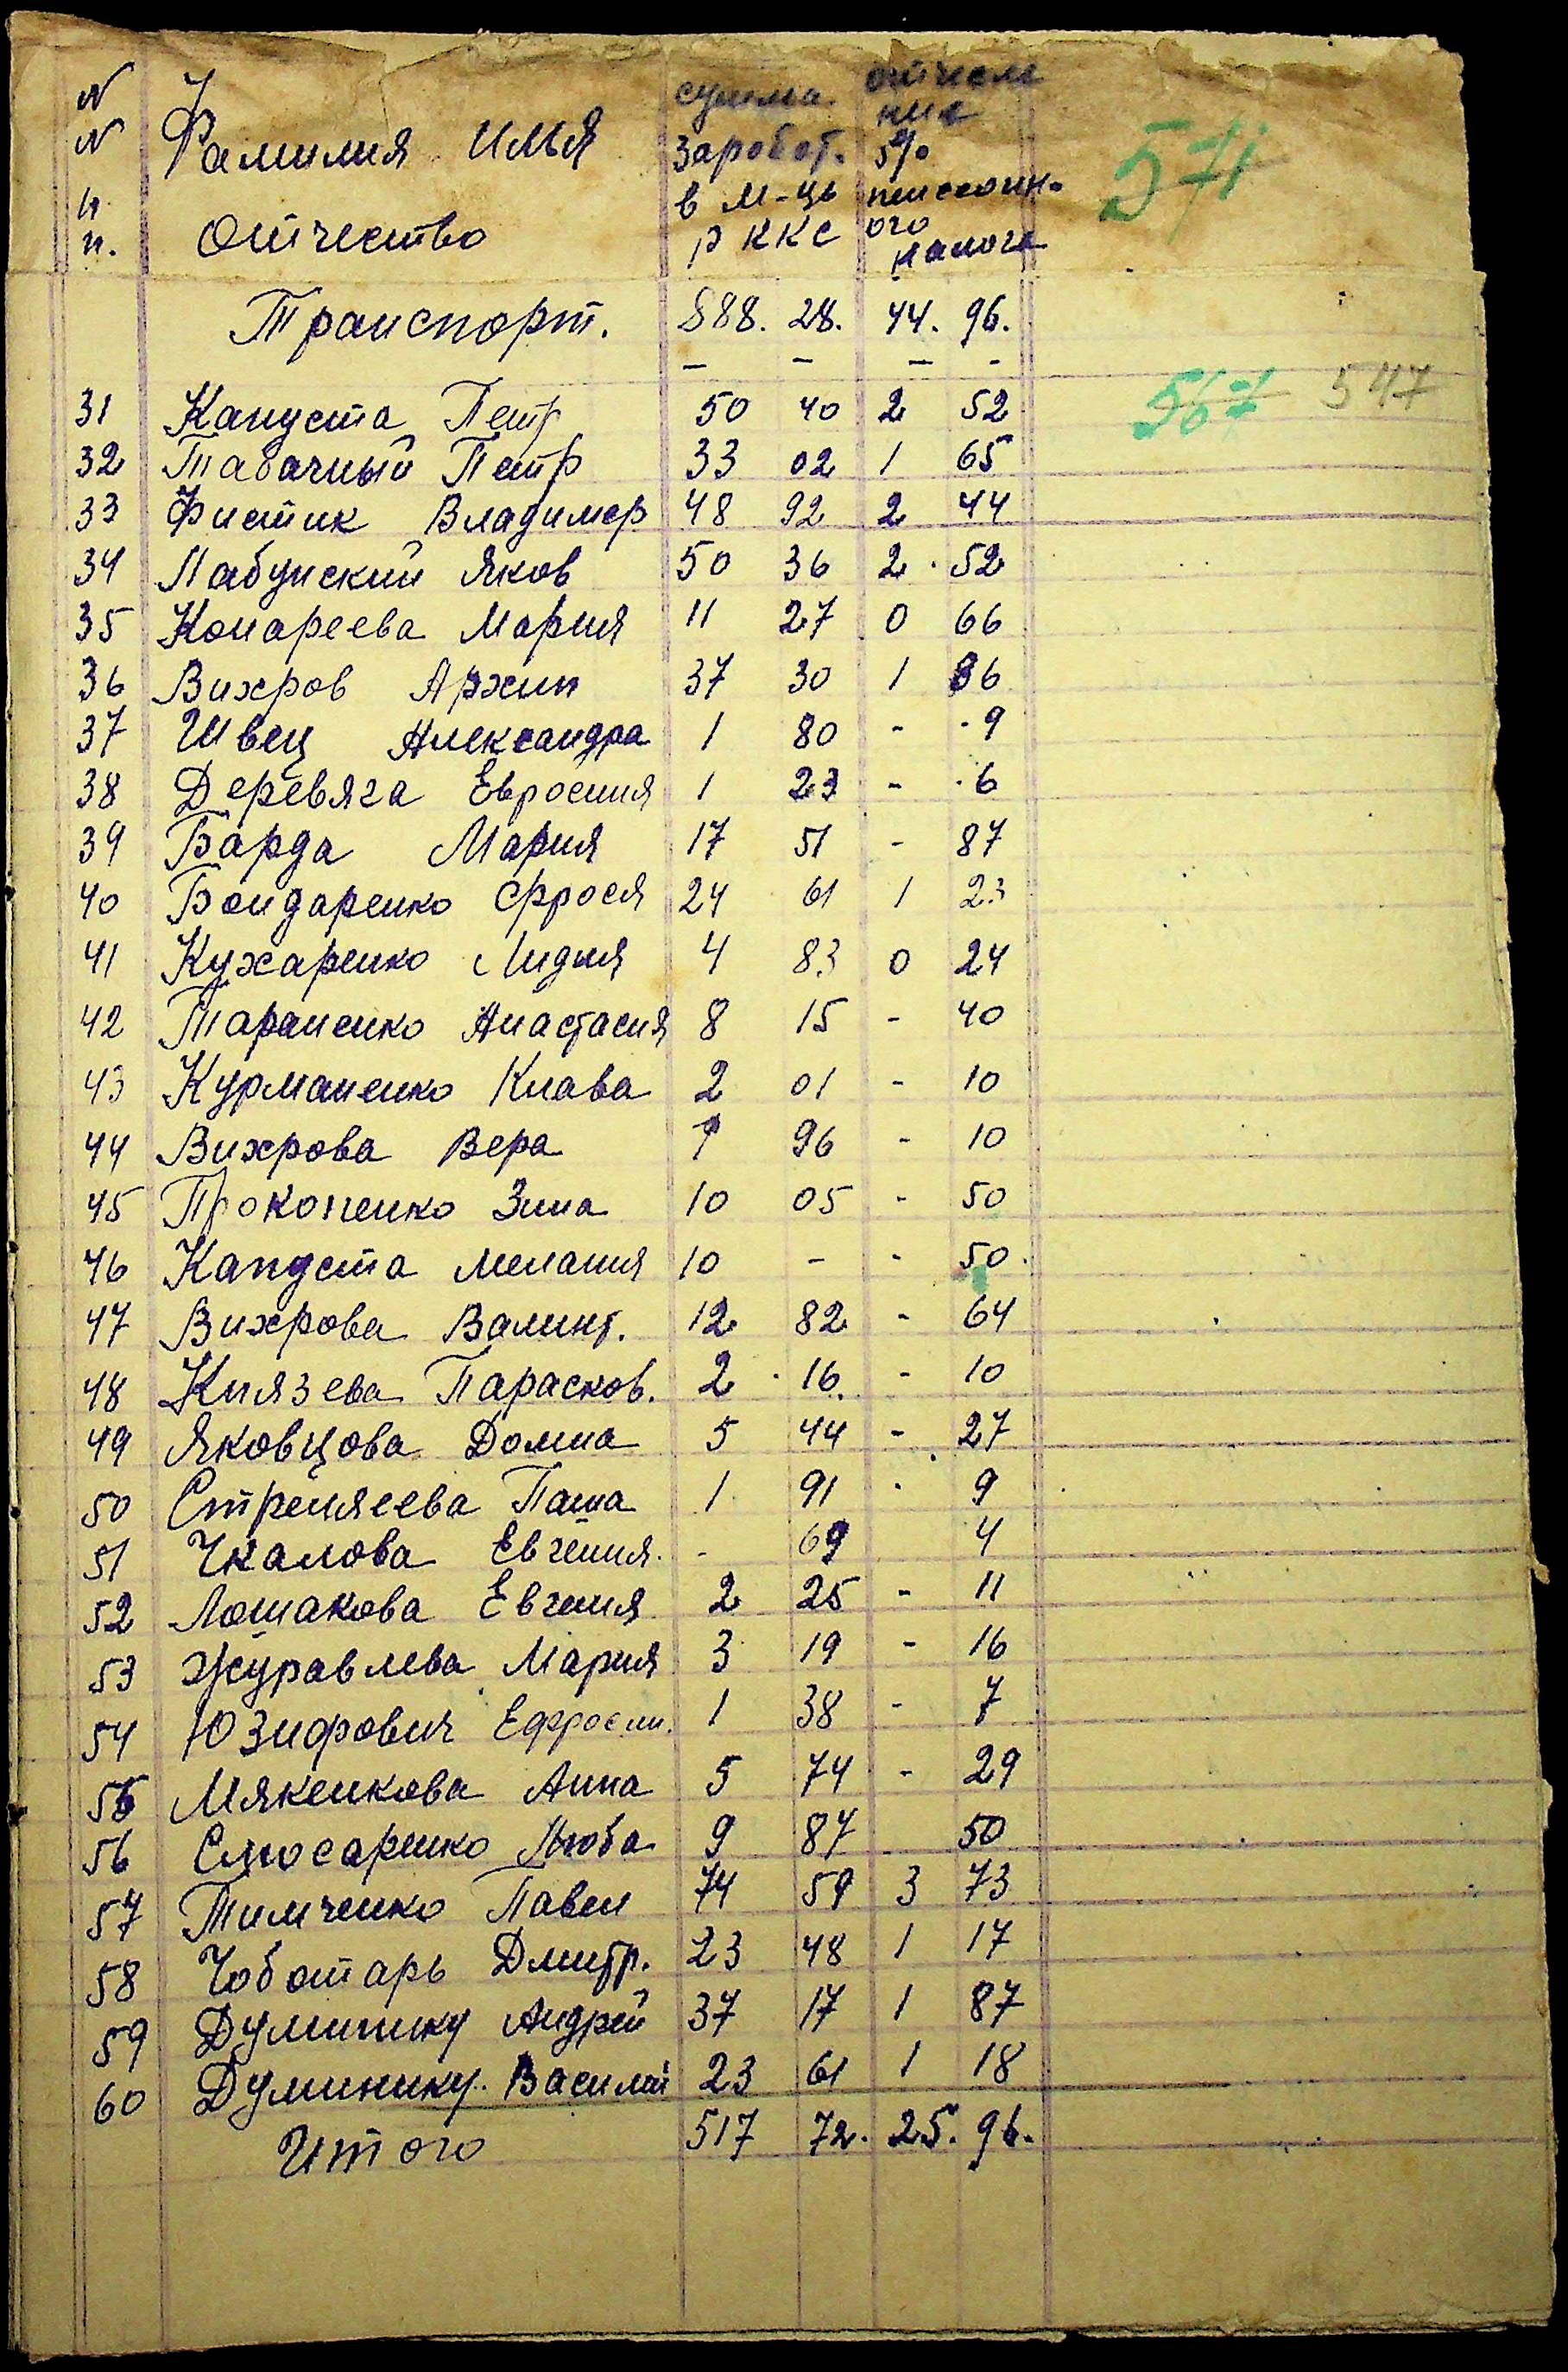 N Фамилия имья сумма отчисле
N заробот. ния 5%
п. Отчество в м-ць пенсеонн-
п. р ккс ого налога
571
Транспорт. 888. 28. 44. 96.
– – – –
567 547
31 Капуста Петр 50 40 2 52
32 Табачный Петр 33 02 1 65
33 Фистик Владимер 48 92 2 44
34 Лабунский Яков 50 36 2 52
35 Конареева Мария 11 27 0 66
36 Вихров Архип 37 30 1 86
37 Швец Александра 1 80 - 9
38 Деревяга Евросиния 1 23 - 6
39 Барда Мария 17 51 - 87
40 Бондаренко Єфрося 24 61 1 23
41 Кухаренко Лидия 4 83 0 24
42 Тараненко Анастасия 8 15 - 40
43 Курманенко Клава 2 01 - 10
44 Вихрова Вера 1 96 - 10
45 Прокопенко Зина 10 05 - 50
46 Капуста Мелания 10 – - 50
47 Вихрова Валинт. 12 82 - 64
48 Князева Парасков. 2 16 - 10
49 Яковцова Домна 5 44 - 27
50 Стреляева Паша 1 91 - 9
51 Чкалова Евгения - 69 4
52 Лошакова Евгения 2 25 - 11
53 Журавлева Мария 3 19 - 16
54 Юзифович Ефросин. 1 38 - 7
55 Мякенкова Анна 5 74 - 29
56 Слюсаренко Люба 9 87 50
57 Тимченко Павел 74 59 3 73
58 Чоботарь Дмитр. 23 48 1 17
59 Думинику Андрей 37 17 1 87
60 Думинику Василий 23 61 1 18
Итого 517 72. 25. 96.